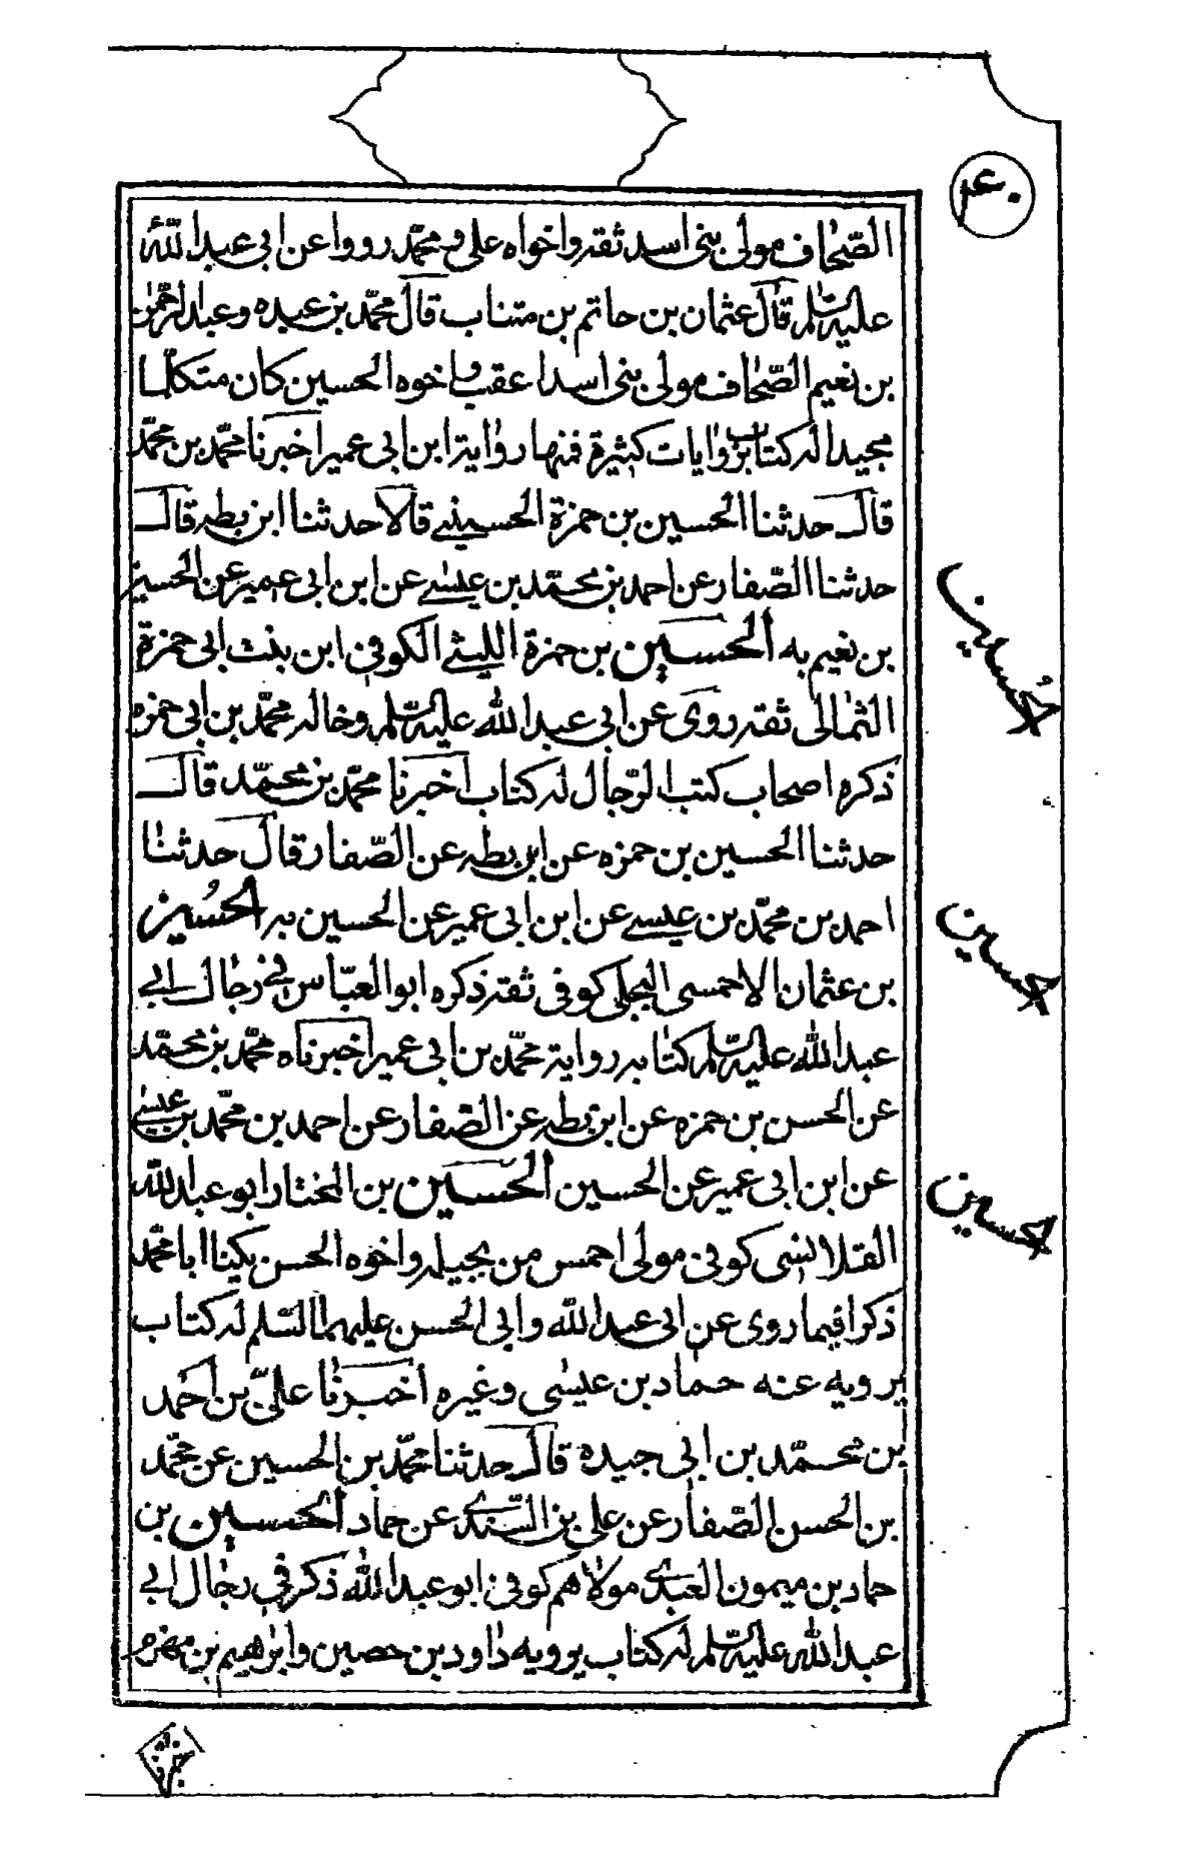 ۴۰
الصّحاف مولى بنى اسد ثقه واخواه على ومحمّد رووا عن ابى عبد اللّه
عليه السّلم قال عثمان بن حاتم بن متناب قال محمّد بن عبده وعبد الرحمٰن
بن نعيم الصّحاف مولى بنى اسد اعقب واخوه الحسين كان متكلّما
مجيدا له كتاب بروايات كثيرة فمنها رواية ابن ابى عمير اخبرنا محمّد بن محمّد
قال حدثنا الحسين بن حمزة الحسينى قالا حدثنا ابن بطه قال
حدثنا الصّفار عن احمد بن محمّد بن عيسى عن ابن ابى عمير عن الحسين
بن نعيم به الحسين بن حمزة الليثى الكوفى ابن بنت ابى حمزة
الثمالى ثقه روى عن ابى عبد اللّه عليه السّلم وخاله محمّد بن ابى حمزه
ذكره اصحاب كتب الرّجال له كتاب اخبرنا محمّد بن محمّد قال
حدثنا الحسين بن حمزه عن ابن بطه عن الصّفار قال حدثنا
احمد بن محمّد بن عيسى عن ابن ابى عمير عن الحسين به الحُسين
بن عثمان الاحمسى البجلى كوفى ثقه ذكره ابو العبّاس فى رجال ابى
عبد اللّه عليه السّلم كتابه رواية محمّد بن ابى عمير اخبرناه محمّد بن محمّد
عن الحسن بن حمزه عن ابن بطه عن الصّفار عن احمد بن محمّد بن عيسى
عن ابن ابى عمير عن الحسين الحسين بن المختار ابو عبد اللّه
القلانسى كوفى مولى احمس من بجيله واخوه الحسن يكنا ابا محمّد
ذكرا فيما روى عن ابى عبد اللّه وابى الحسن عليهما السّلم له كتاب
يرويه عنه حماد بن عيسى وغيره اخبرنا علىّ بن احمد
بن محمّد بن ابى جيده قال حدثنا محمّد بن الحسين عن محمّد
بن الحسن الصّفار عن على بن السّندى عن حماد الحسين بن
حماد بن ميمون العبدى مولاهم كوفى ابو عبد اللّه ذكر فى رجال ابى
عبد اللّه عليه السّلم له كتاب يرويه داود بن حصين وابرهيم بن مهزم
حُسين
حسين
الحسين